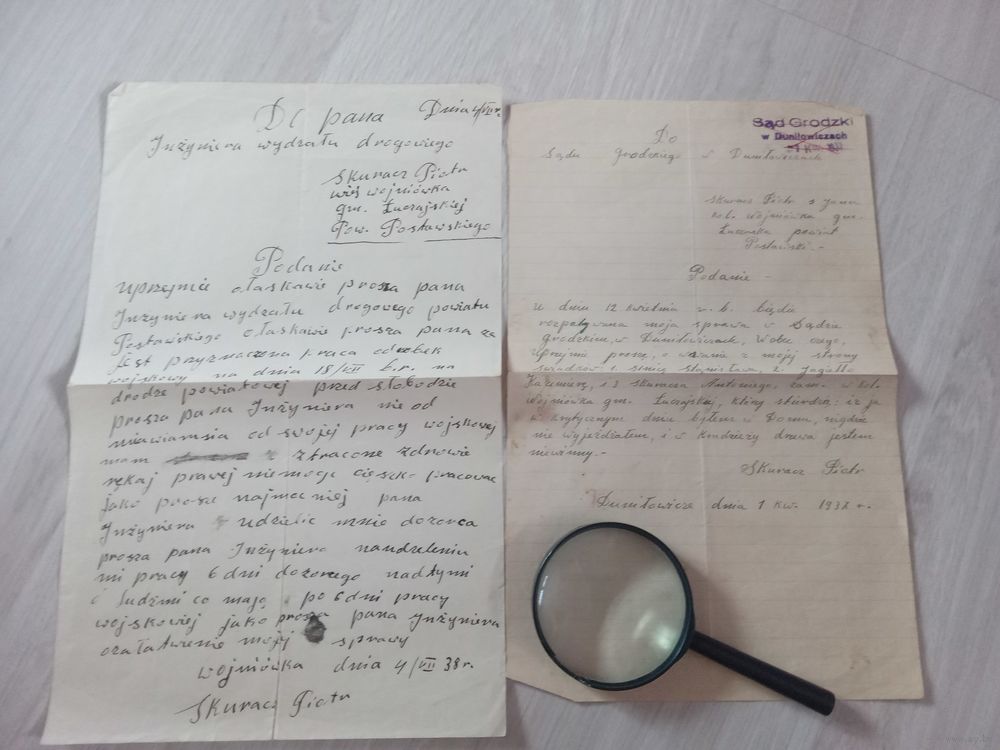 Do pana Dnia 4/VII r.
Inżyniera wydzału drogowego
Skuracz Piotr
wieś wojniówka
gm. Łuczajskiej
Pow. Postawskiego
Podanie
uprzejmie ołaskawie prosza pana
Inżyniera wydzału drogowego powiatu
Postawskiego ołaskawie prosza pana za
jest przyznaczona praca odrobek
wojskowy na dnia 18/VII b.r. na
drodze powiatowej przed słobodzie
prosza pana Inżyniera nie od
mawiamsia od swojej pracy wojskowej
mam ztracone zdrowie
rękaj prawej niemoge ciężko pracowac
jako prosze najmocniej pana
Inżyniera udzielic mnie dozorca
prosza pana Inżyniera naudzeleniu
mi pracy 6 dni dozorcego nadtymi
ludzmi co mają po 6 dni pracy
wojskowiej jako prosza pana Inżyniera
ozałatwienie mojej sprawy
wojniówka dnia 4/VII 38 r.
Skuracz Piotr
Sąd Grodzki
w Duniłowiczach
Do
Sądu Grodzkiego w Duniłowiczach
Skuracz Piotr s Jana
kol. Wojniówka gm.
Łuczajska powiat
Postawski.-
Podanie -
W dniu 12 kwietnia r. b. będzie
rozpatrywana moja sprawa w Sądzie
grodzkim, w Duniłowiczach, Wobec czego,
uprzejmie proszę, o wezwanie z mojej strony
świadków: 1. Stanisława, 2. Jagiełło
Kazimierz, i 3 Skuracza Antoniego, zam. w kol.
Wojniówka gm. Łuczajskiej, którzy stwierdzą: iż ja
w krytycznym dniu byłem w Domu, nigdzie
nie wyjeżdżałem, i o kradzieży drzewa jestem
niewinny.-
Skuracz Piotr
Duniłowicze dnia 1 Kw. 193 r.